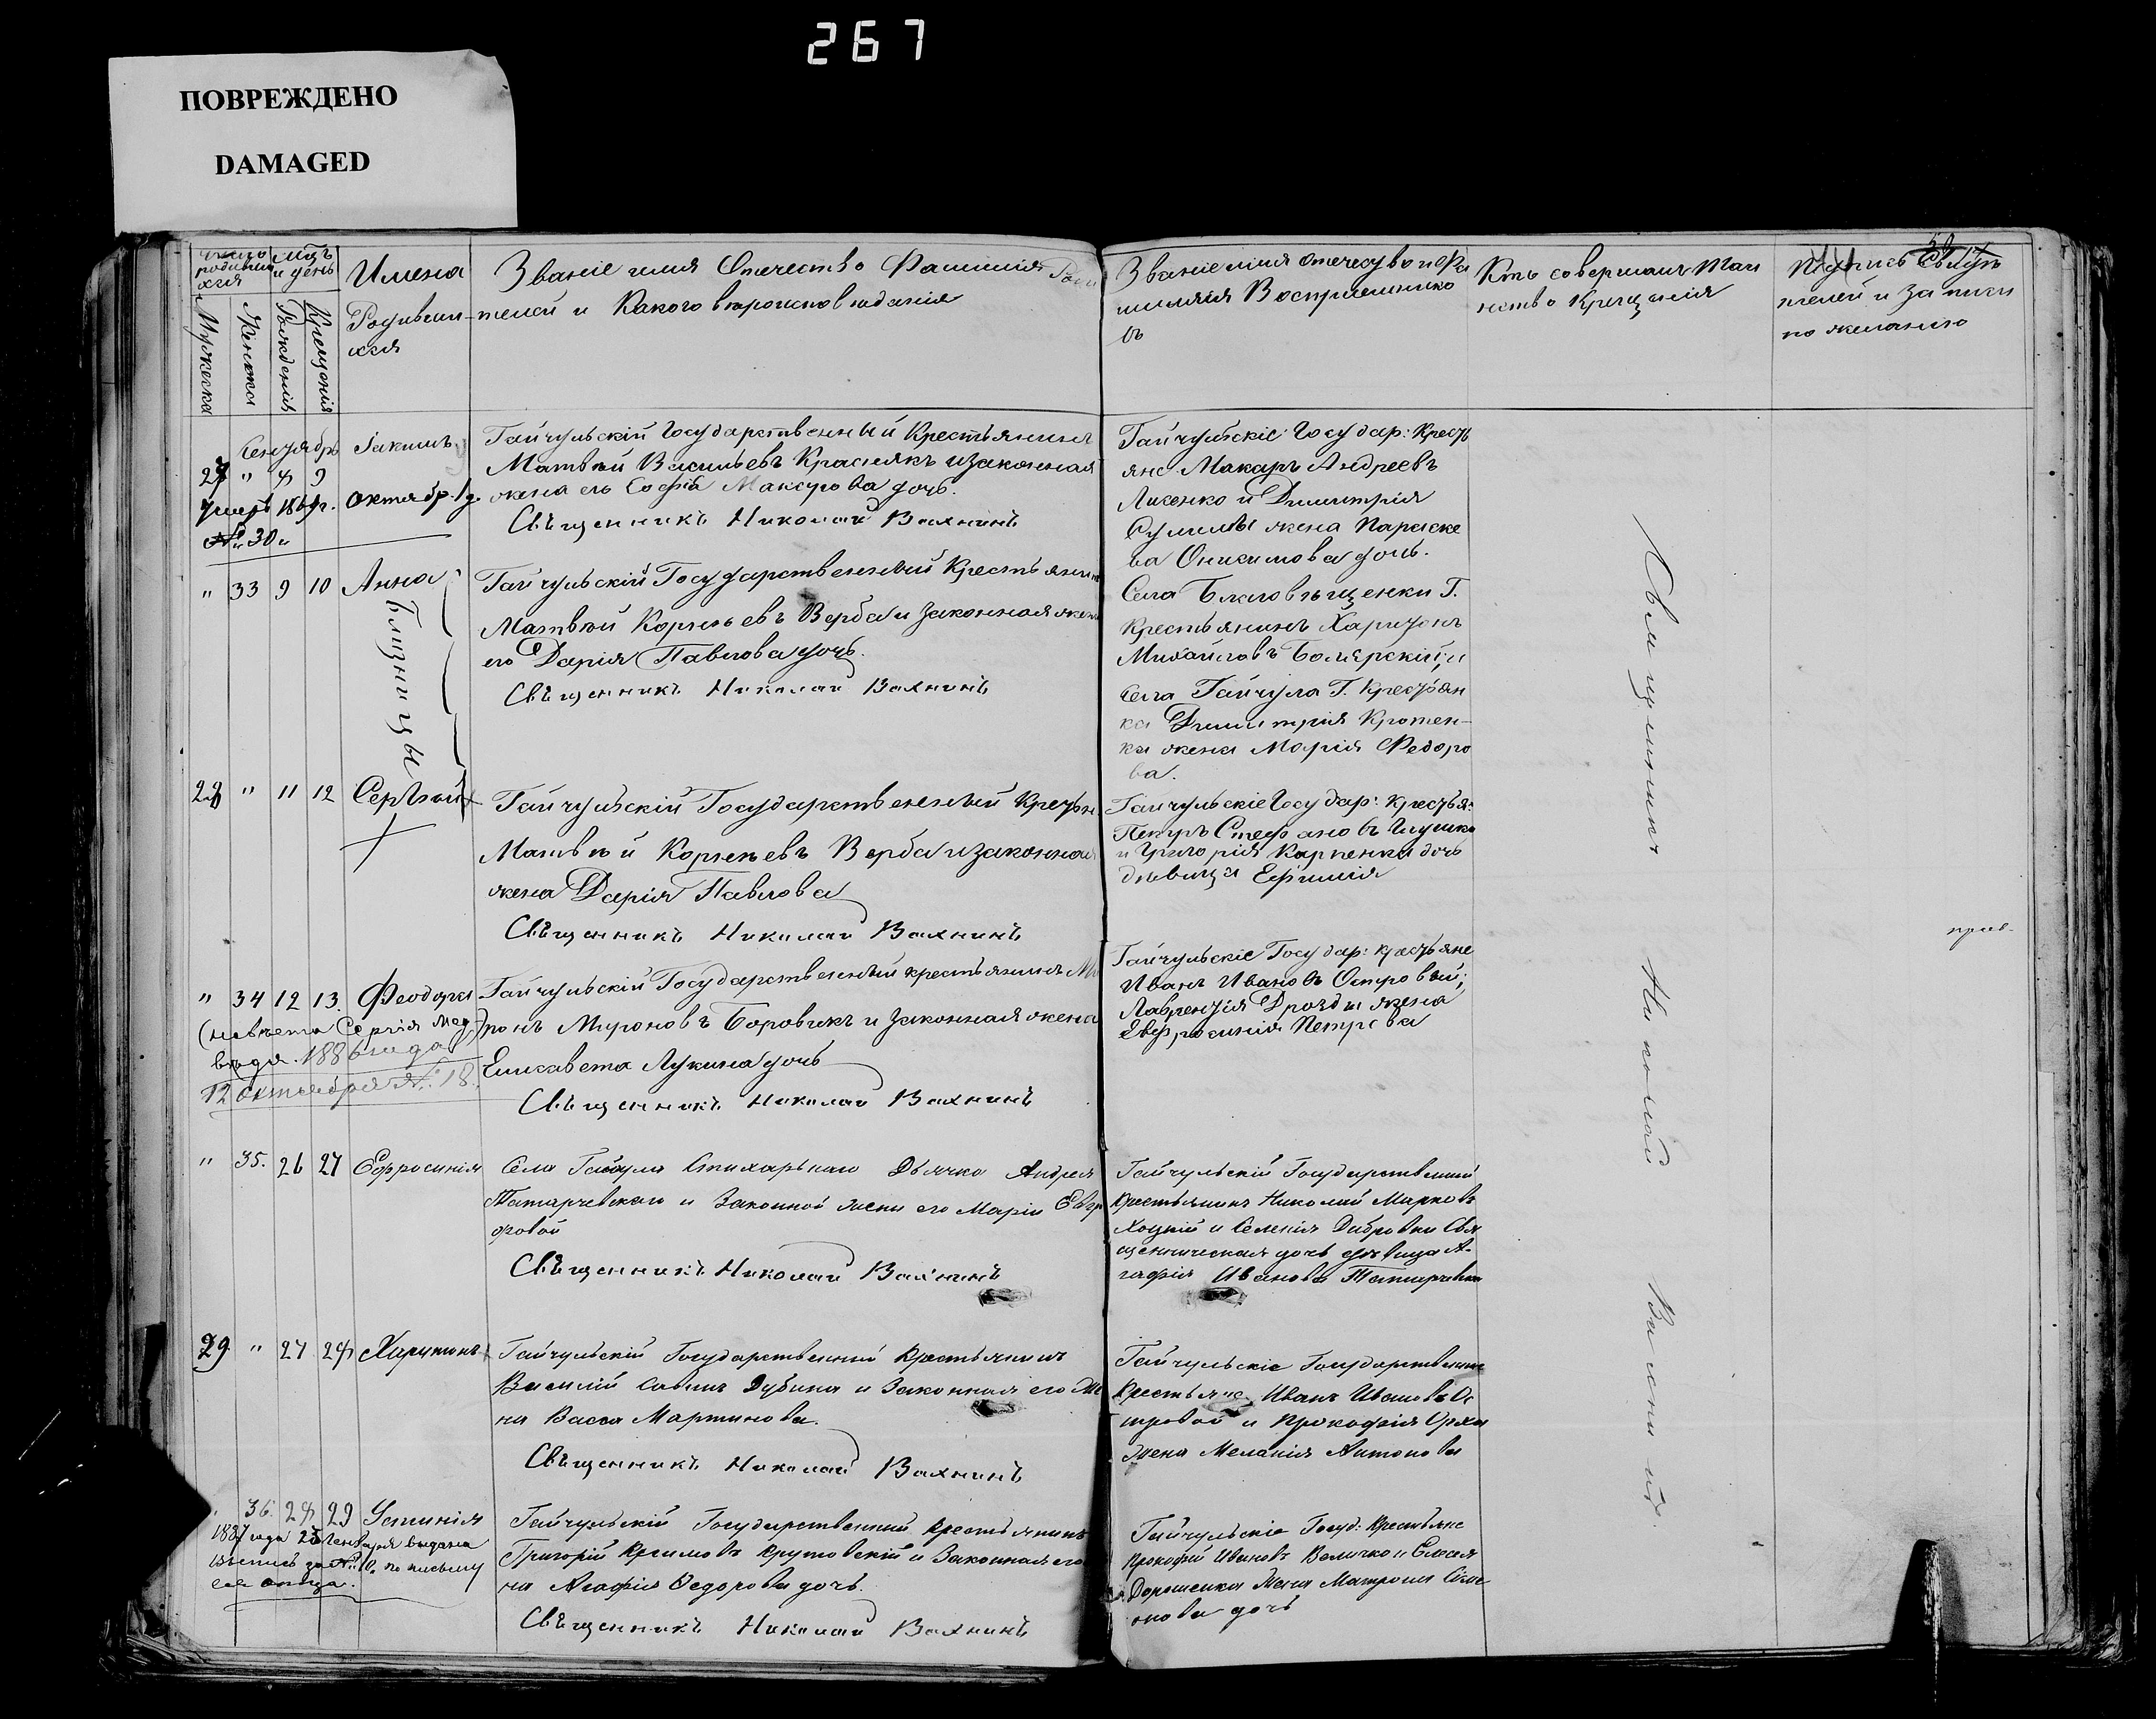 267
ПОВРЕЖДЕНО
DAMAGED
Число родившихся
Мужеска
Женска
Мцъ и день
Рожденія
Крещенія
Имена
Родивших-
ся
Званіе имя Отечество Фамилія Роди
телей и Какого вероисповюданія
Званіе имя отечество и Фа
милія Воспріемнико
въ
Кто совершалъ Таи
нство Крещенія
телей и записи
по желанію
Сентябрь
27 " 8 9 Іакимъ
Умеръ 1869г. октябр. 1 д.
№ 30
Гайчульскій Государственный Крестьянинъ
Матвѣй Васильевъ Краснякъ и законная
жена его Софія Максумова дочь.
Священникъ Николай Вахнинъ
Гайчульскіе Государ: Кресть
яне Макаръ Андреевъ
Лисенко и Димитрія
жена Параске
ва Онисимова дочь.
" 33 9 10 Анна
Близницы
Гайчульскій Государственный Крестьянин
Матвѣй Корнѣевъ Верба и законная жена
его Дарія Павлова дочь.
Священникъ Николай Вахнинъ
Села Благовѣщенки Г.
Крестьянинъ Харитонъ
Михайловъ Болярскій, и
Села Гайчула Г. Крестьян
ка Димитрія Кротен-
ка жена Марія Федоро
ва.
28 " 11 12 Сергѣй
Гайчульскій Государственный Крестьян.
Матвѣй Корнѣевъ Верба и законная
жена Дарія Павлова
Священникъ Николай Вахнинъ
Гайчульскіе Государ: Крестья:
Петръ Стефановъ Глушко
и Григорія Карпенка дочь
дѣвица Ефимія
" 34 12 13. Феодора
12 октября № 18.
Гайчульскій Государственный крестьянинъ Ми
ронъ Мироновъ Боровикъ и законная жена
Елисавета Лукина дочь
Священникъ Николай Вахнинъ
Гайчульскіе Государ: крестьяне
Иванъ Ивановъ Островой;
Лаврентія Дрозды жена
Евфросинія Петрова
прав.
" 35. 26 27 Ефросинія
Села Гайчула Стихарнаго Дьячка Андрея
Татарчевскаго и Законной жены его Маріи Евгр
фовой
Священникъ Николай Вахнинъ
Гайчульскій Государственный
Крестьянинъ Николай Марковъ
Хоцкій и Селенія Дибровки Свя
щенническая дочь дѣвица А-
гафія Иванова Татарчевска
29 " 27 28 Харитонъ
Гайчульскій Государственный Крестьянинъ
Василій Савинъ Дубина и Законная его Же
на Васса Мартинова.
Священникъ Николай Вахнинъ
Гайчульскіе Государственные
Крестьяне Иванъ Ивановъ Ос
тровой и Прокофія
Жена Меланія Антонова
36. 28 29 Устинія
1887 года 25 Генваря выдана
выпись за № 10. по письму
ее отца.
Гайчульскій Государственный Крестьянинъ
Григорій Крутовскій и Законная его
на Агафія Федорова дочь.
Священникъ Николай Вахнинъ
Гайчульскіе Госуд: Крестьяне
Прокофій Ивановъ Величко и Елисея
Дорошенка Жена Матрона Симе
онова дочь
Священникъ Николай Вахнинъ